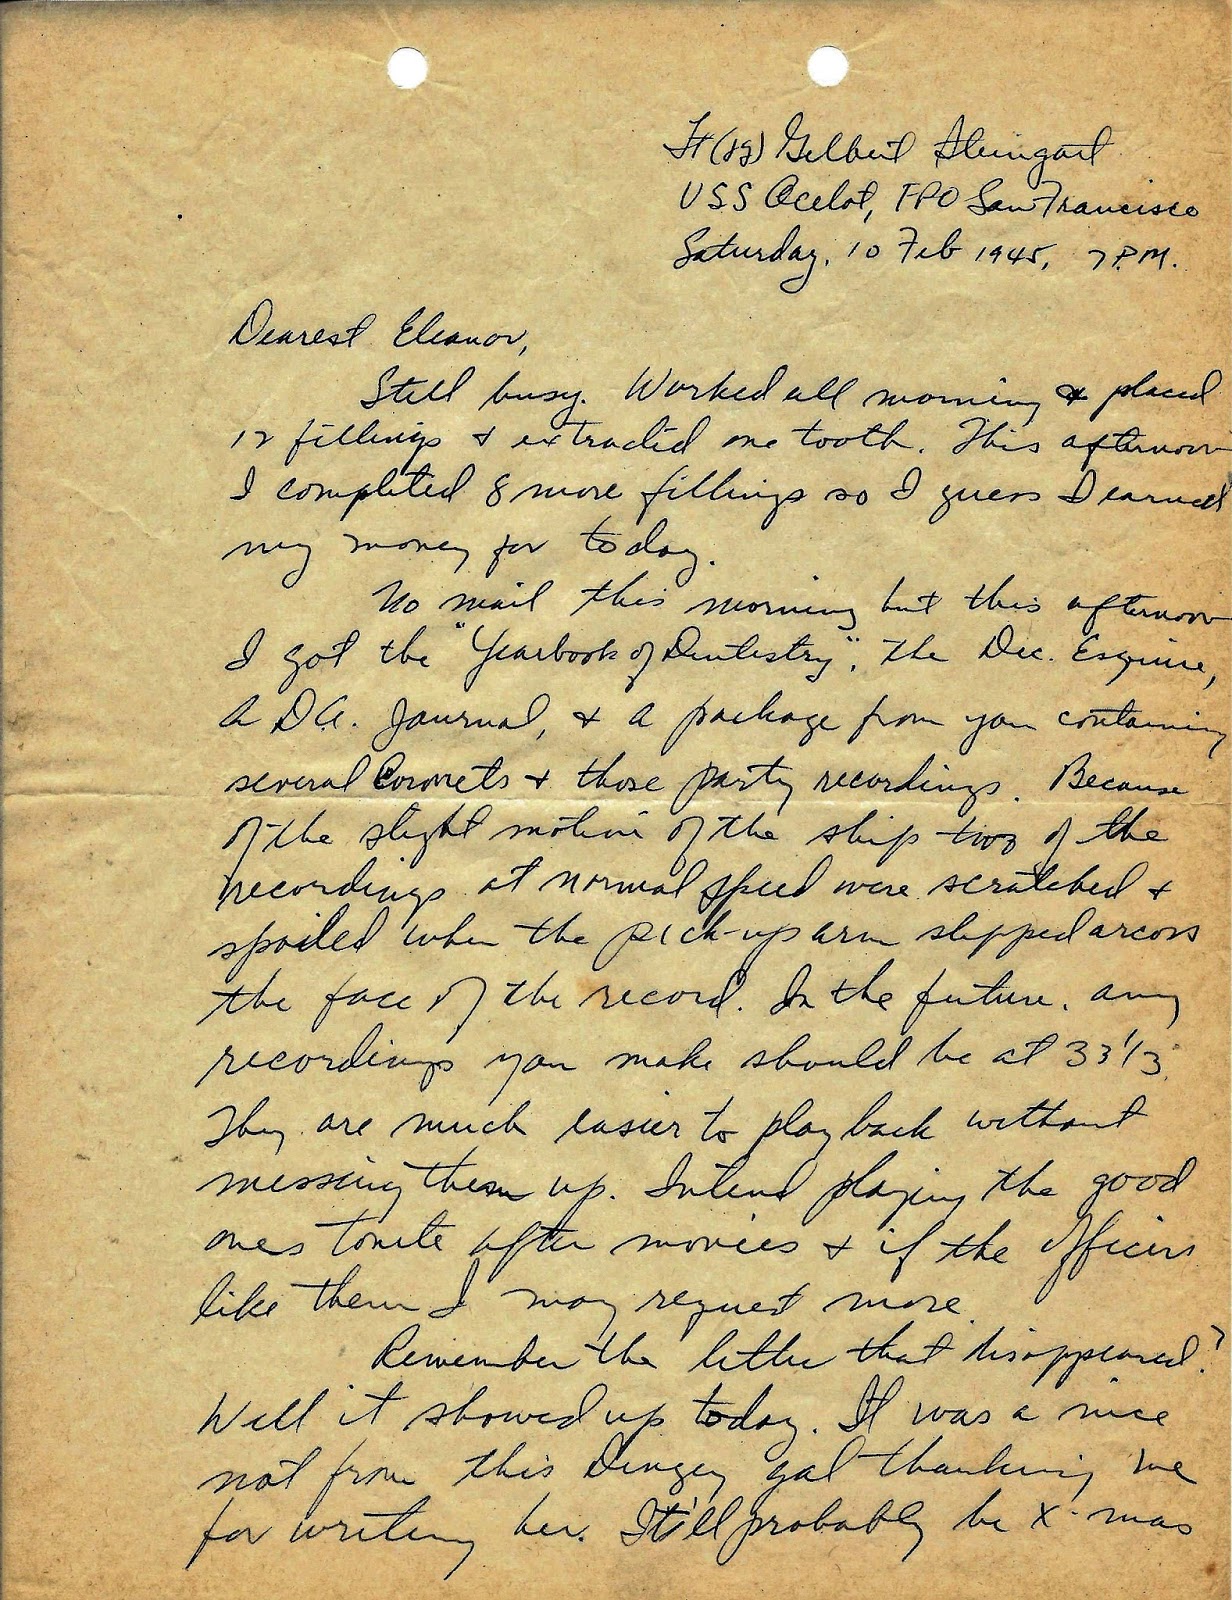 Lt (jg) Gilbert Steingart
USS Ocelot, FPO San Francisco
Saturday, 10 Feb 1945, 7 P.M.
Dearest Eleanor,
Still busy. Worked all morning & placed
12 fillings & extracted one tooth. This afternoon
I completed 8 more fillings so I guess I earned
my money for today.
No mail this morning but this afternoon
I got the "Yearbook of Dentistry", the Dec. Esquire,
A D.A. Journal, & a package from you containing
several Coronets & those party recordings. Because
of the slight motion of the ship two of the
recordings at normal speed were scratched &
spoiled when the pick-up arm slipped arcoss
the face of the record. In the future, any
recordings you make should be at 33 1/3.
They are much easier to play back without
messing them up. Intend playing the good
ones tonite after movies & if the officers
like them I may request more.
Remember the letter that disappeared?
Well it showed up today. It was a nice
not from this gal thanking me
for writing her. It'll probably be X-mas